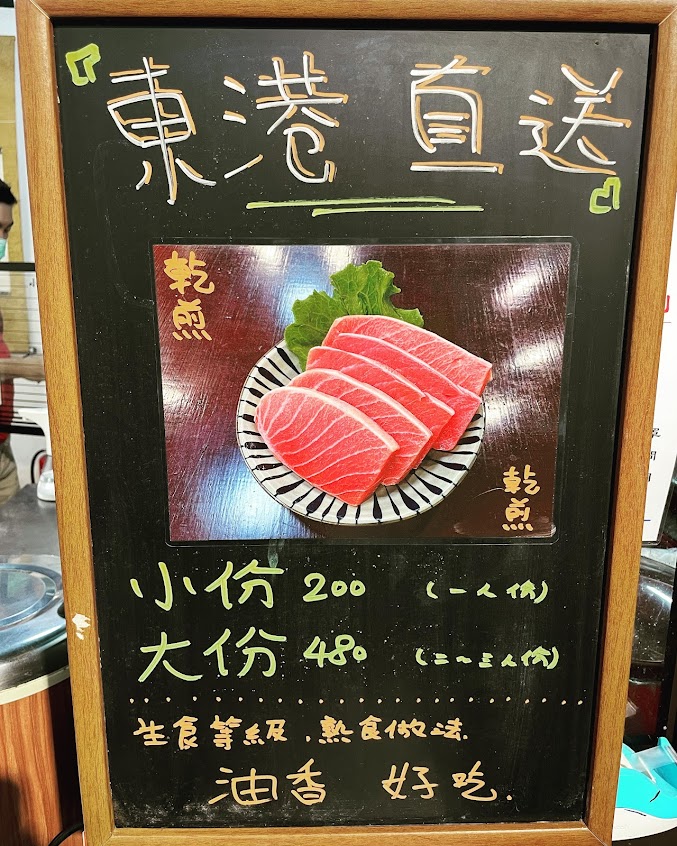 『東港 直送』
乾煎
乾煎
小份 200 (一人份)
大份 480 (二~三人份)
生食等級.熟食做法.
油香 好吃.